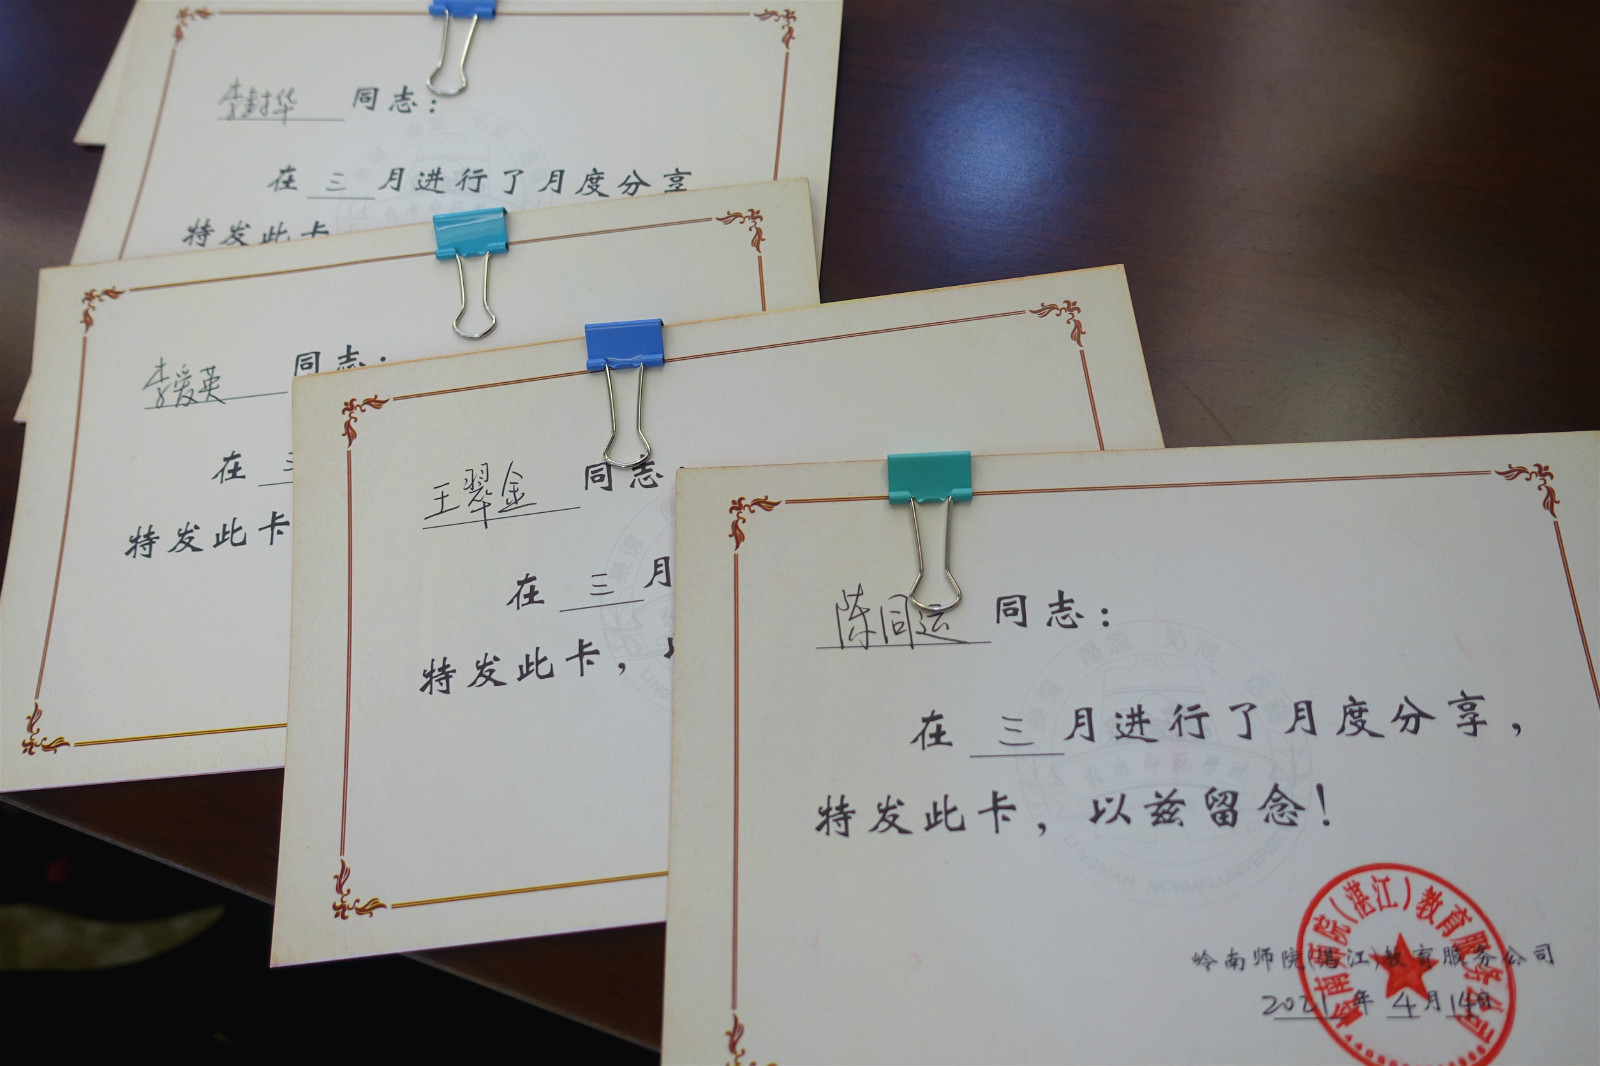 李封华 同志：
在 三 月进行了月度分享
特发此卡
李爱英 同志：
在 三
特发此卡
王翠金 同志：
在 三 月
特发此卡，以
陈同运 同志：
在 三 月进行了月度分享，
特发此卡，以兹留念！
岭南师院(湛江)教育服务公司
2021年 4月14日
岭南师院(湛江)教育服务公司
LINGNAN NORMAL UNIVERSITY